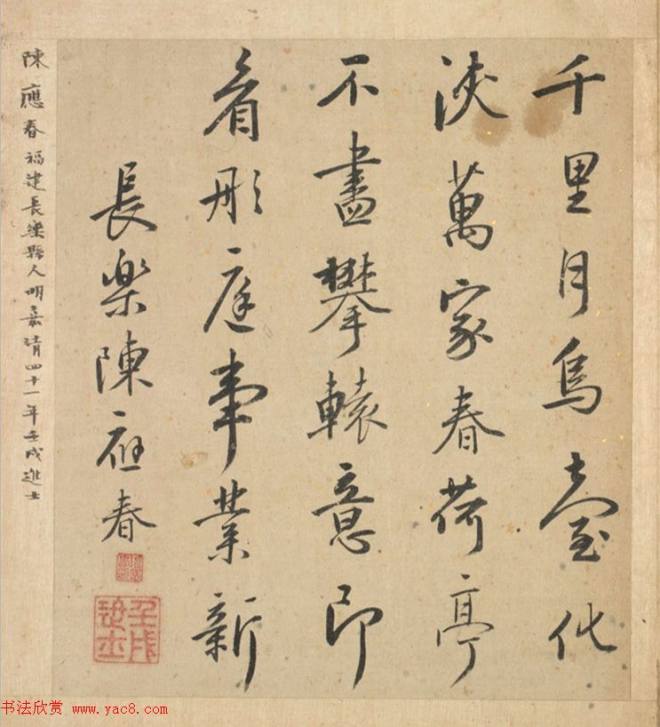 千里月烏臺化
浹萬家春荷亭
不盡攀轅意即
看彤庭事業新
長樂陳應春
壬戌進士
陳應春福建長樂縣人明嘉靖四十一年壬戌進士
书法欣赏 www.yac8.com